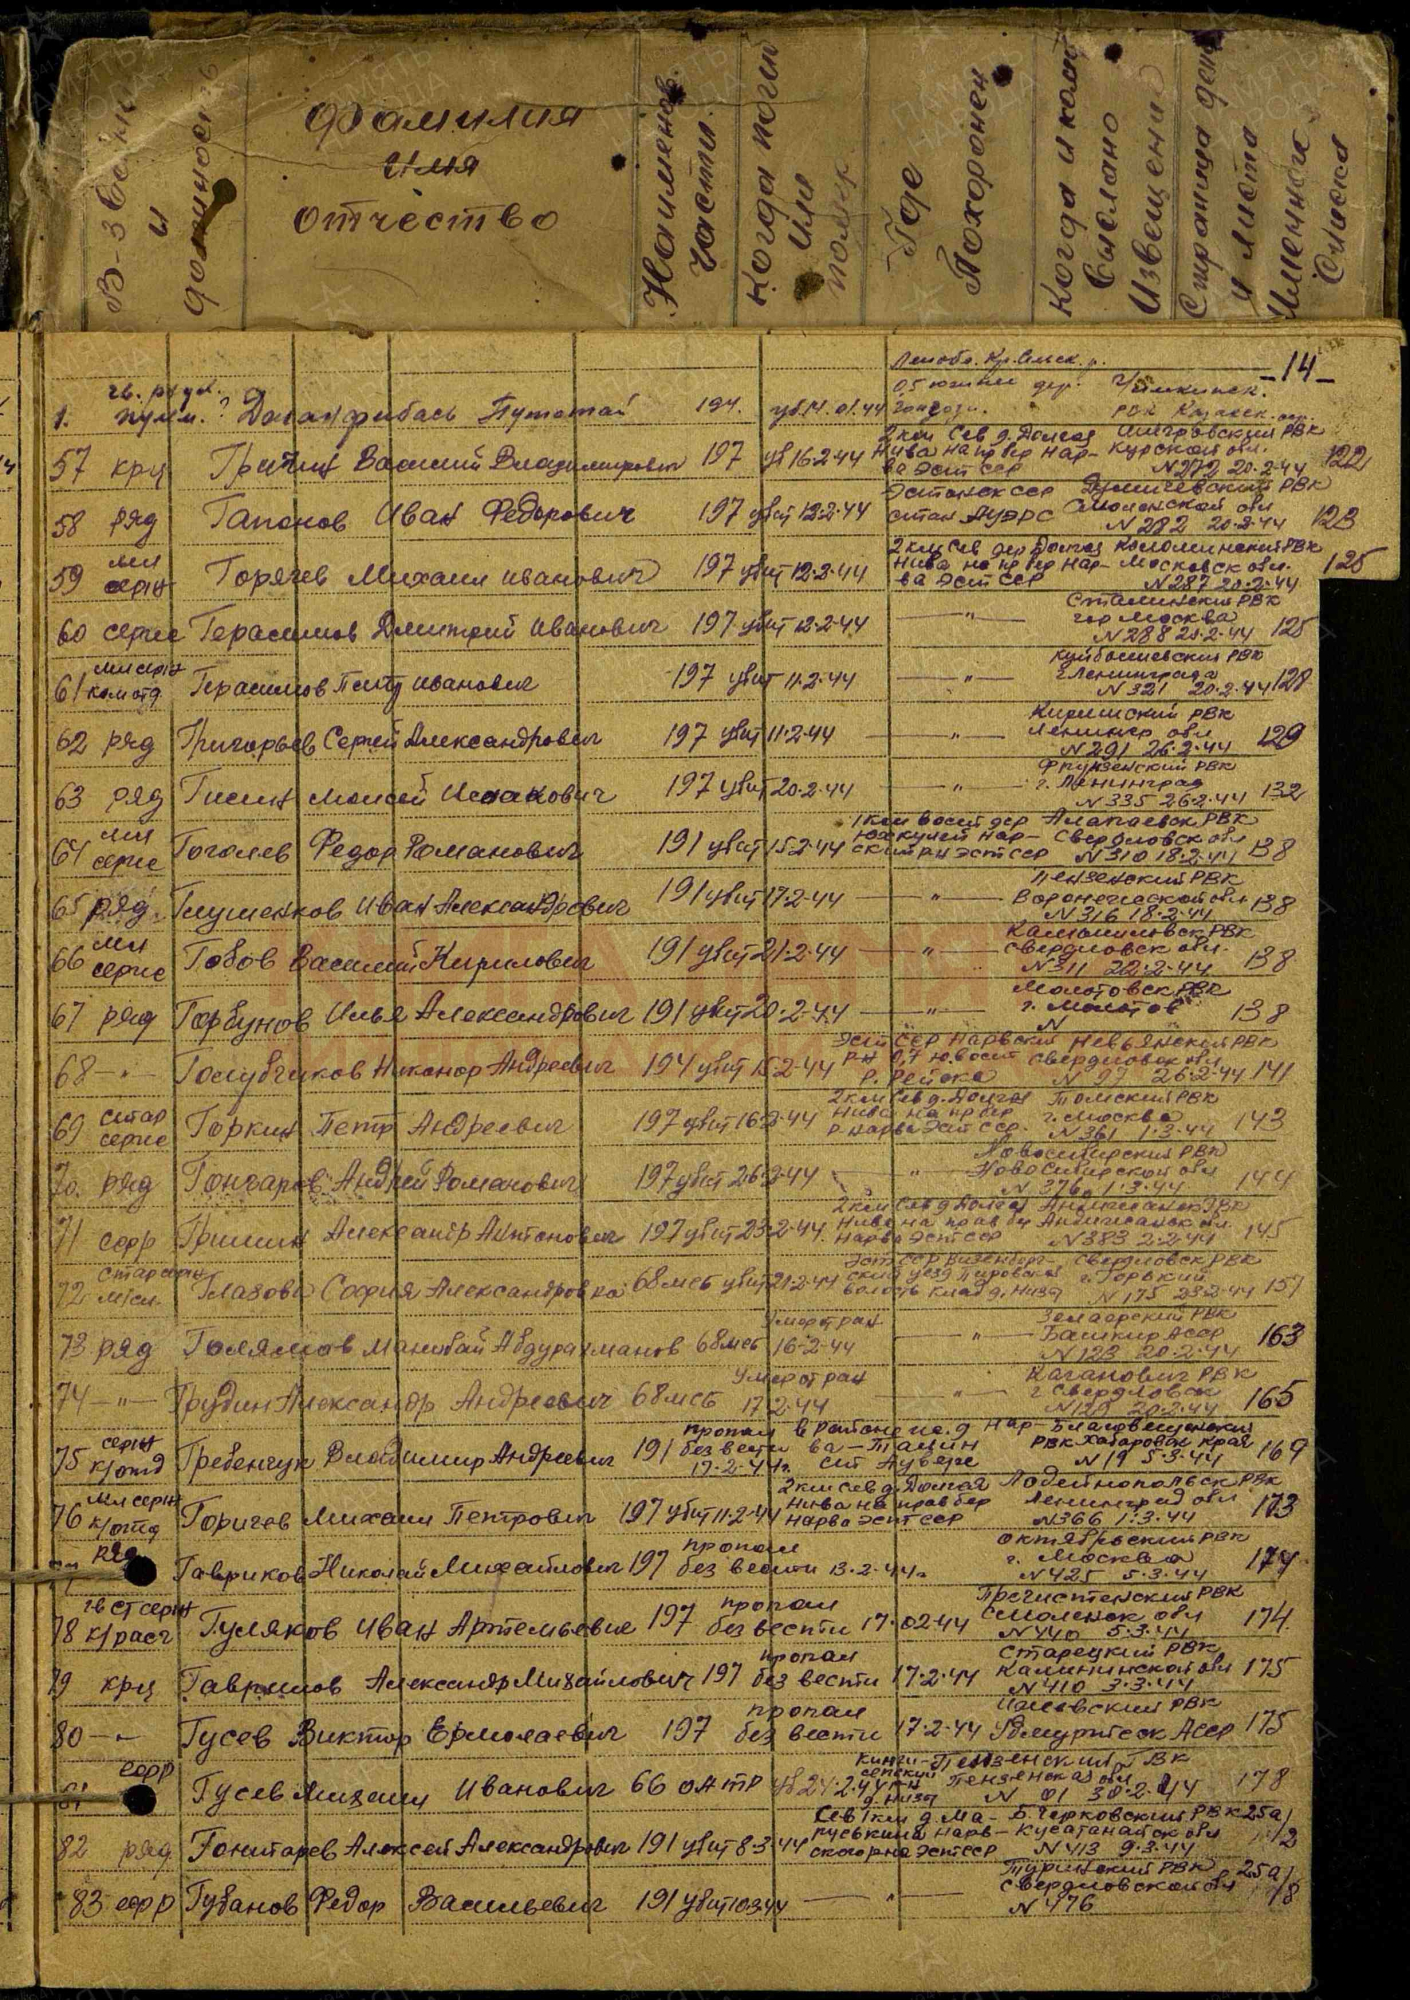 В-звание и должность
Фамилия имя отчество
Наименов. части
Когда погиб или помер
Где Похоронен
Когда и кому выслано Извещение
Страница и места Именного Списка
-14-
1. гв. ряд. пулем. ? 194. уб. 14.01.44
57 крц Василий Владимирович 197 уб 16-2-44 2 км Сев д. Долгая Нива на пр бер Нарва Эст ССР РВК Курской обл. N 272 20-2-44 122
58 ряд Гапонов Иван Федорович 197 убит 12-2-44 Эстонск ССР стан Аувэрс РВК Смоленской обл N 282 20-2-44 123
59 мл серж Горячев Михаил Иванович 197 убит 12-2-44 2 км Сев дер Долгая Нива на пр бер Нарва Эст ССР Коломинский РВК Московск обл. N 287 20-2-44 125
60 серж Герасимов Дмитрий Иванович 197 убит 12-2-44 —"— Сталинский РВК гор Москва N 288 20-2-44 125
61 мл серж ком отд Герасимов Петр Иванович 197 убит 11-2-44 —"— Куйбышевский РВК г Ленинграда N 321 20-2-44 128
62 ряд Григорьев Сергей Александрович 197 убит 11-2-44 —"— Киришский РВК Ленингр обл N 291 26-2-44 129
63 ряд Моисей Исакович 197 убит 20-2-44 —"— Фрунзенский РВК г. Ленинград N 335 26-2-44 132
64 мл серж Гоголев Федор Романович 191 убит 15-2-44 1 км вост дер Нарвский рн Эст ССР Алапаевск РВК Свердловск обл N 310 18-2-44 138
65 ряд. Глушенков Иван Александрович 191 убит 17-2-44 —"— РВК Воронежской обл N 316 18-2-44 138
66 мл серж Гобов Василий Кирилович 191 убит 21-2-44 —"— РВК Свердловск обл. N 311 22-2-44 138
67 ряд Горбунов Илья Александрович 191 убит 20-2-44 —"— Молотовск РВК г. Молотов N 138
68 —"— Голубчиков Никонор Андреевич 194 убит 15-2-44 Эст ССР Нарвский р-н 0,7 ю. вост Невьянский РВК Свердловск обл N 97 26-2-44 141
69 стар серж Горкин Петр Андреевич 197 убит 16-2-44 2 км Сев д. Долгая Нива на пр бер р. Нарва Эст ССР. РВК г. Москва N 361 1-3-44 143
70. ряд Гончаров Андрей Романович 197 убит 26-2-44 —"— Новосибирский РВК Новосибирской обл N 376 1-3-44 144
71 ефр Гришин Александр Антонович 197 убит 23-2-44 2 км Сев д Долгая Нива на прав бер Нарва Эст ССР РВК N 383 2-2-44 145
72 стар серж Глазова София Александровна 68 мсб убит 21-2-44 Эст ССР волость клад д. Низя Свердловск РВК г. Горький N 175 23-2-44 157
73 ряд Голямов Абдурахманов 68 мсб Умер от ран 16-2-44 —"— РВК Башкир Асср N 123 20-2-44 163
74 —"— Грудин Александр Андреевич 68 мсб Умер от ран 17-2-44 —"— Каганович РВК г. Свердловск 20-2-44 165
75 серж к/отд Гребенчук Владимир Андреевич 191 пропал без вести 17-2-44 г. в районе Нарва-Таллин ст Аувере Благовещенский РВК Хабаровск края N 19 5-3-44 169
76 мл серж к/отд Горичев Михаил Петрович 197 убит 11-2-44 2 км Сев д. Долгая Нива на прав бер Нарва Эст ССР Лодейнопольск РВК Ленинград обл N 366 1-3-44 173
ряд Гавриков Николай Михайлович 197 пропал без вести 13-2-44 г. Октябрьский РВК г. Москва N 425 5-3-44 174
78 гв ст серж к/расч Гуляков Иван Артемьевич 197 пропал без вести 17-02-44 Пречистенский РВК Смоленск обл N 440 5-3-44 174
79 крц Гаврилов Александр Михайлович 197 пропал без вести 17-2-44 Старецкий РВК Калининской обл N 410 3-3-44 175
80 —"— Гусев Виктор Ермолаевич 197 пропал без вести 17-2-44 РВК Удмуртсск Асср 175
81 ефр Гусев Михаил Иванович 66 ОАТР уб 24-2-44 Кингисепский р-н д. Низя Пензенский ГВК Пензенская обл N 01 30-2-44 178
82 ряд Алексей Александрович 191 убит 8-3-44 Сев 1 км д. Нарвского р-на Эст ССР РВК обл N 413 9-3-44 25а/2
83 ефр Губанов Федор Васильевич 191 убит 10-3-44 —"— Туринский РВК Свердловской обл N 476 25а/8